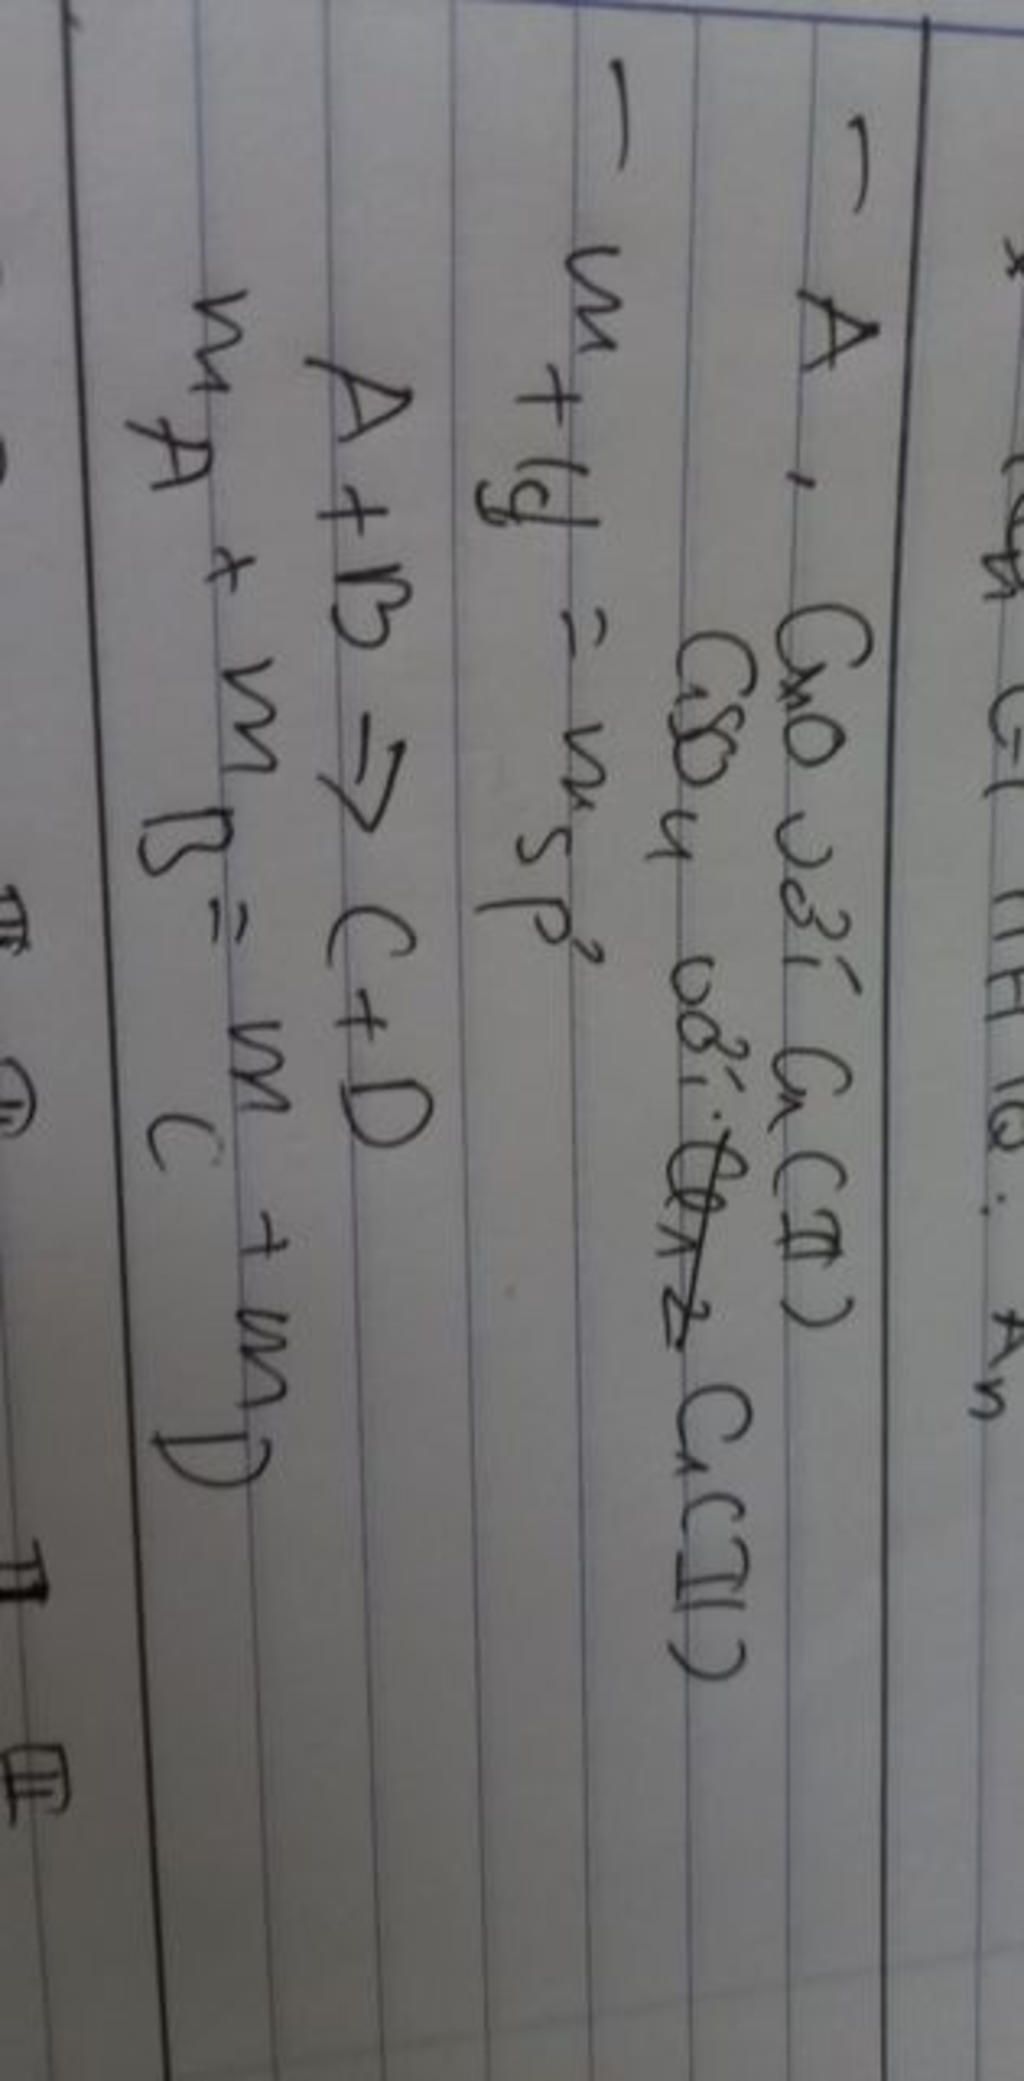 - A, CuO với Cu(II)
CuSO4 với Cu(II)
- m tg = m sp
A + B => C + D
mA + mB = mC + mD
II III